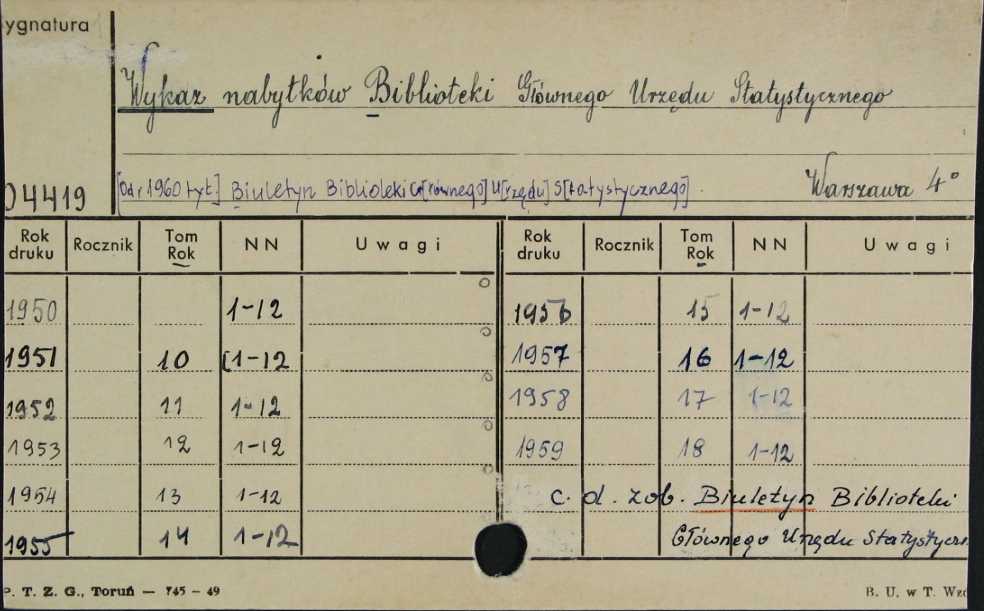 ygnatura
Wykaz nabytków Biblioteki Głównego Urzędu Statystycznego
04419 [Od r 1960 tyt.] Biuletyn Biblioteki Gł[równego] U[rzędu] S[tatystycznego]. Warszawa 4°
Rok druku Rocznik Tom Rok NN Uwagi Rok druku Rocznik Tom Rok NN Uwagi
1950 1-12 1956 15 1-12
1951 10 [1-12 1957 16 1-12
1952 11 1-12 1958 17 1-12
1953 12 1-12 1959 18 1-12
1954 13 1-12 c. d. zob. Biuletyn Biblioteki
1955 14 1-12 Głównego Urzędu Statystyczn
P. T. Z. G., Toruń — 745 - 49 B. U. w T. Wzó